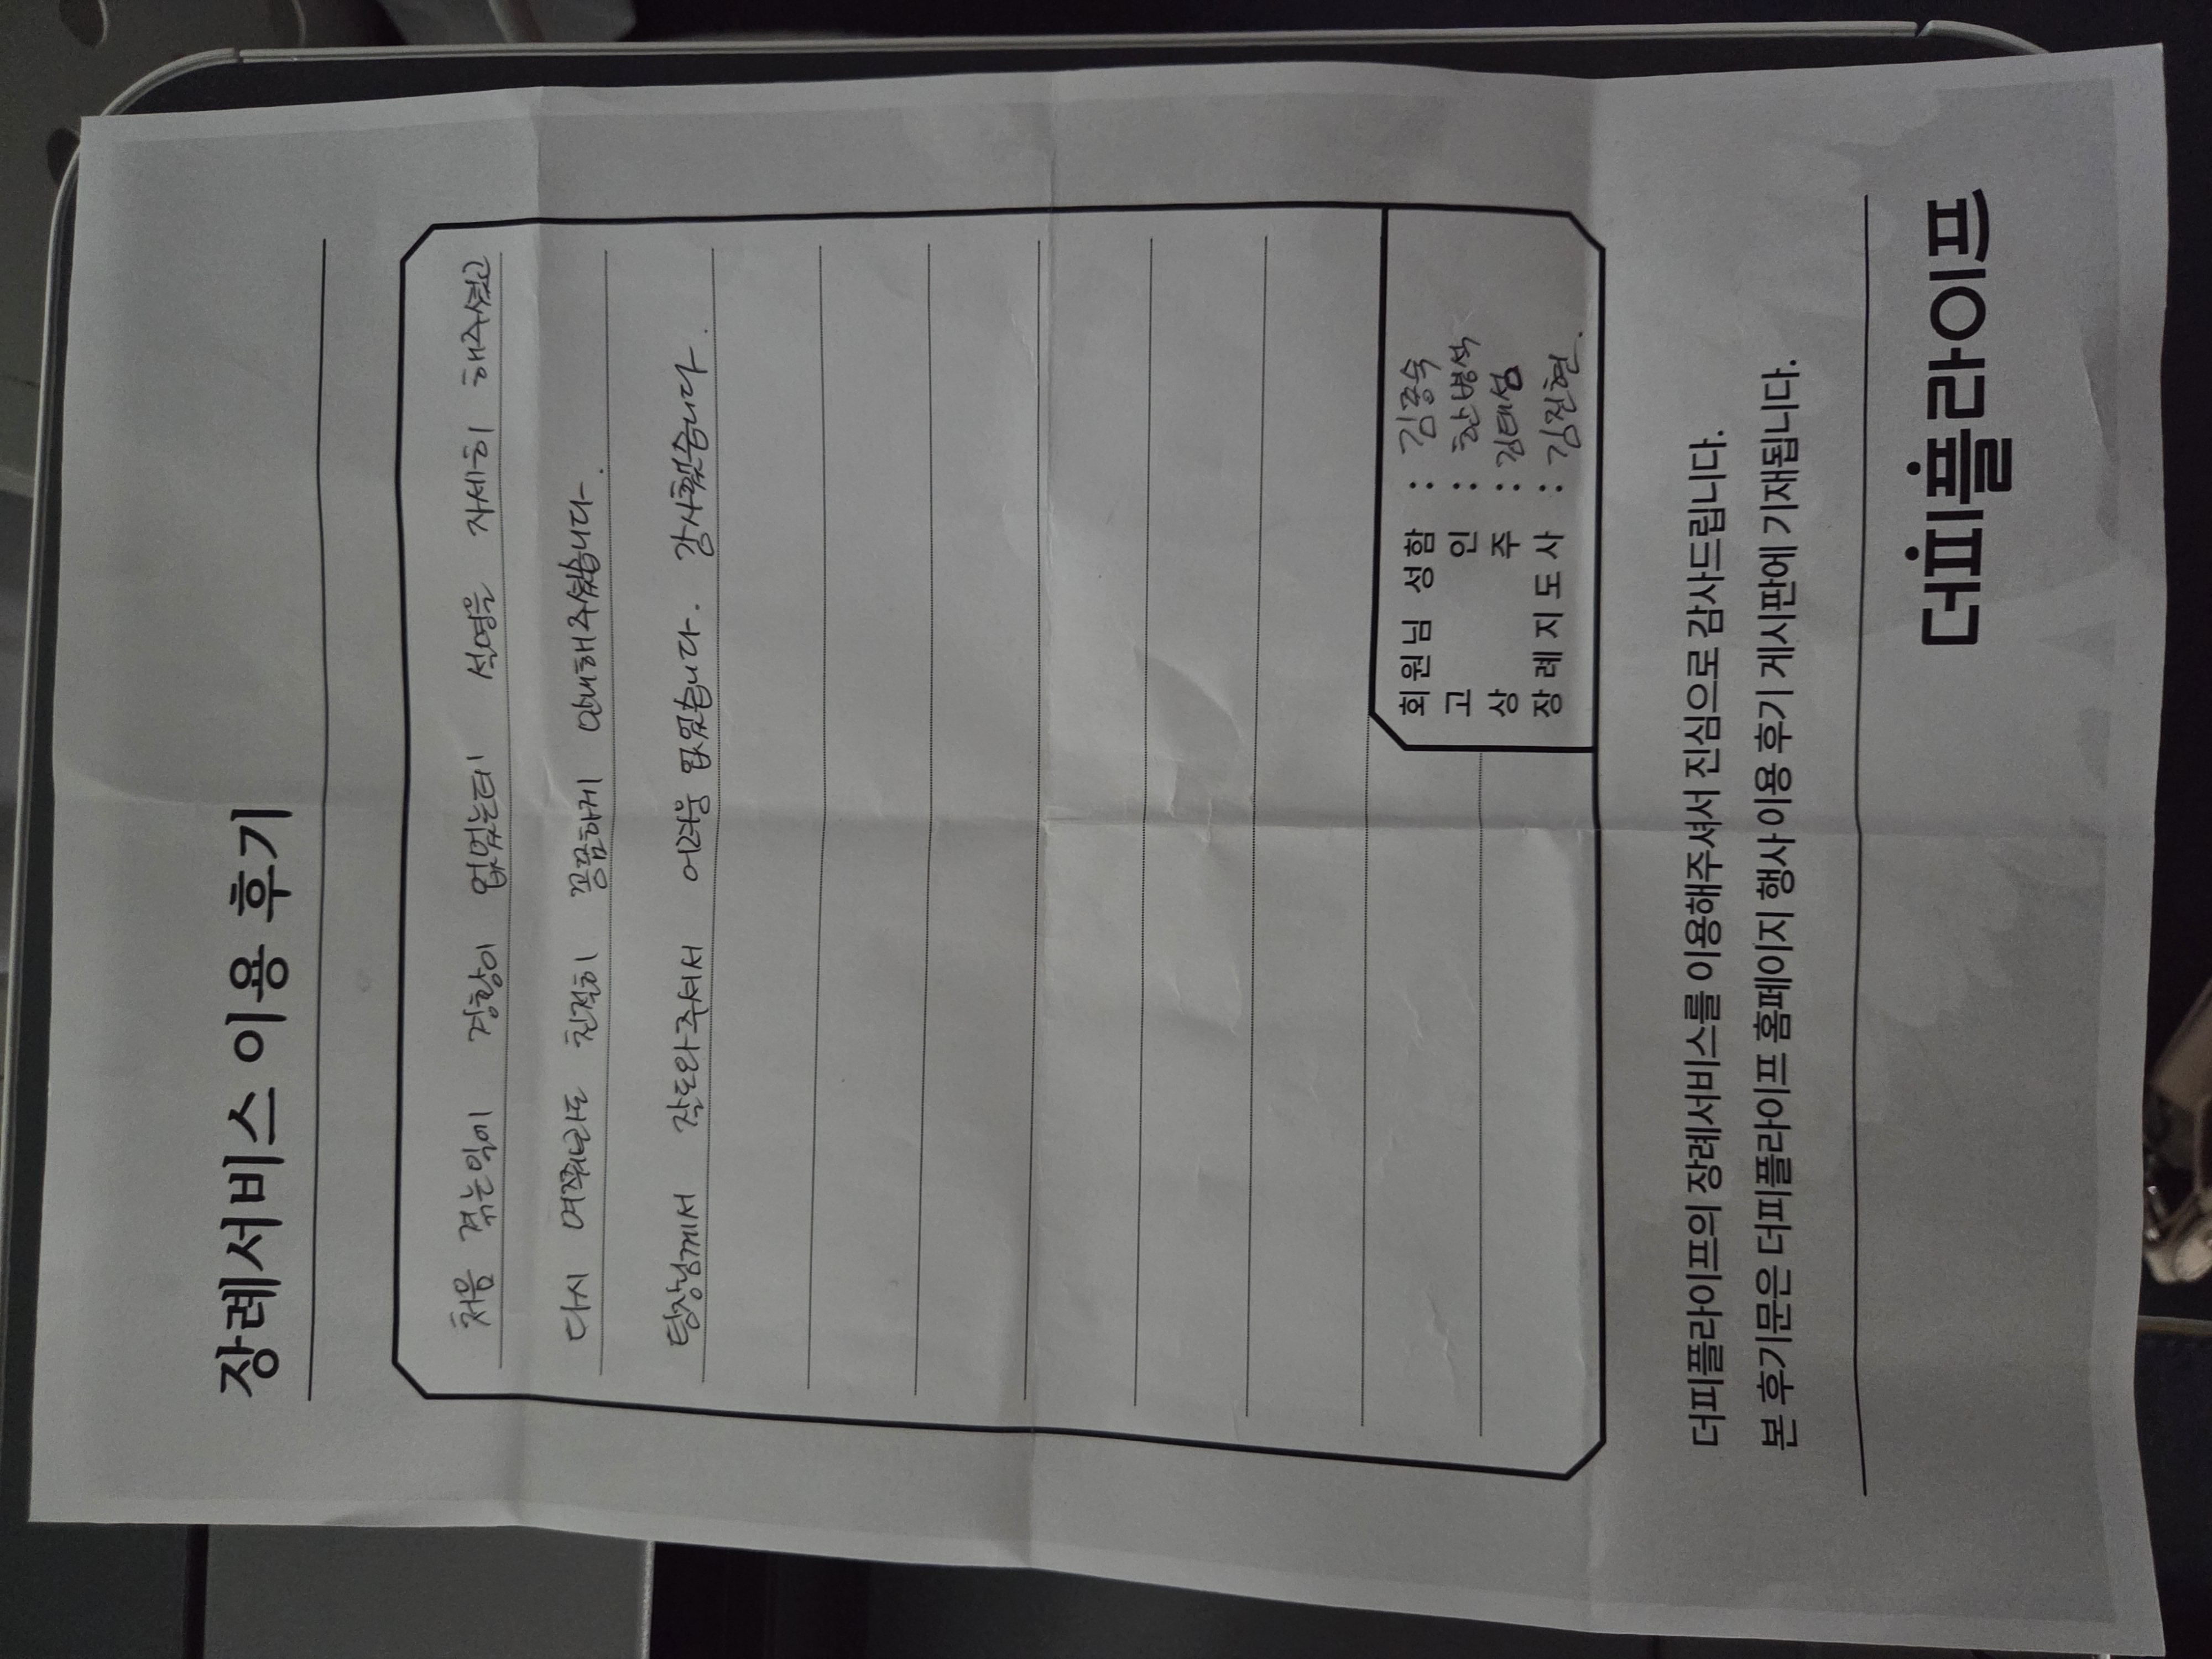 장례서비스 이용 후기
처음 겪는일이 경황이 없었는데 설명을 자세히 해주셨고
다시 여쭤봐도 친절히 꼼꼼하게 안내해주셨습니다.
팀장님께서 잘도와주셔서 어려움 없었습니다. 감사했습니다.
회원님 성함 : 김종숙
고 인 : 한병석
상 주 : 김태섭
장례지도사 : 김진현.
더피플라이프의 장례서비스를 이용해주셔서 진심으로 감사드립니다.
본 후기문은 더피플라이프 홈페이지 행사 이용 후기 게시판에 기재됩니다.
더피플라이프